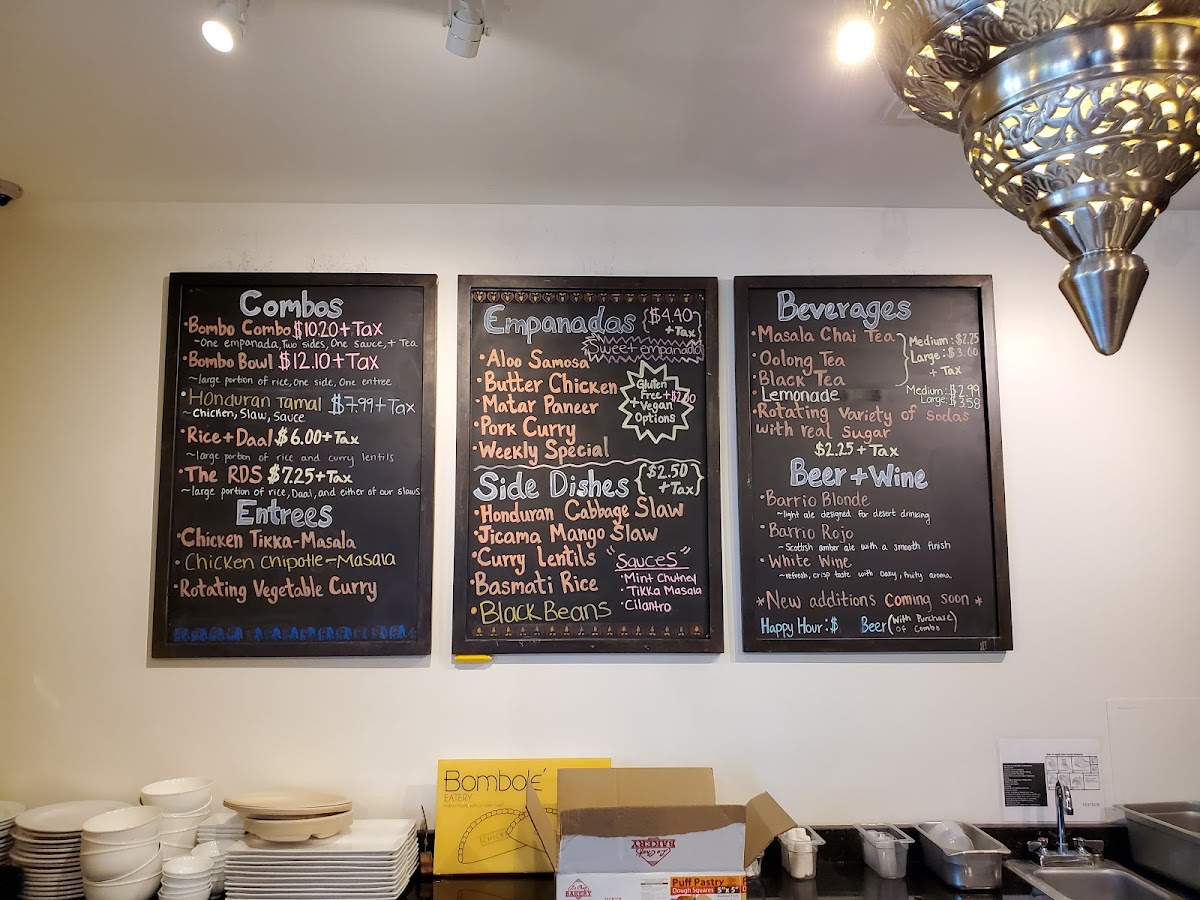 Combos
•Bombo Combo $10.20+Tax
~One empanada, Two sides, One sauce, + Tea
•Bombo Bowl $12.10+Tax
~large portion of rice, One side, One entree
•Honduran Tamal $7.99+Tax
~Chicken, Slaw, Sauce
•Rice+Daal $6.00+Tax
~large portion of rice and curry lentils
•The RDS $7.25+Tax
~large portion of rice, Daal, and either of our slaws
Entrees
•Chicken Tikka-Masala
•Chicken Chipotle-Masala
•Rotating Vegetable Curry
Empanadas {$4.40 + Tax}
Sweet empanada
•Aloo Samosa
•Butter Chicken
•Matar Paneer
•Pork Curry
•Weekly Special
Gluten
Free
+ Vegan
Options
Side Dishes {$2.50 +Tax}
•Honduran Cabbage Slaw
•Jicama Mango Slaw
•Curry Lentils
•Basmati Rice
•Black Beans
"Sauces"
•Mint Chutney
•Tikka Masala
•Cilantro
Beverages
•Masala Chai Tea
•Oolong Tea
•Black Tea
Medium: $2.25
Large: $3.00
+ Tax
•Lemonade
Medium: $2.99
Large: $3.58
•Rotating Variety of Sodas
with real Sugar
$2.25 + Tax
Beer + Wine
•Barrio Blonde
~light ale designed for desert drinking
•Barrio Rojo
~Scottish amber ale with a smooth finish
•White Wine
~refresh, crisp taste with oaky, fruity aroma
*New additions Coming soon *
Happy Hour: $ Beer (With Purchase of Combo)
Bombolé
EATERY
CHICKEN
BAKERY
BAKERY
Puff Pastry
Dough Squares 5"x5"